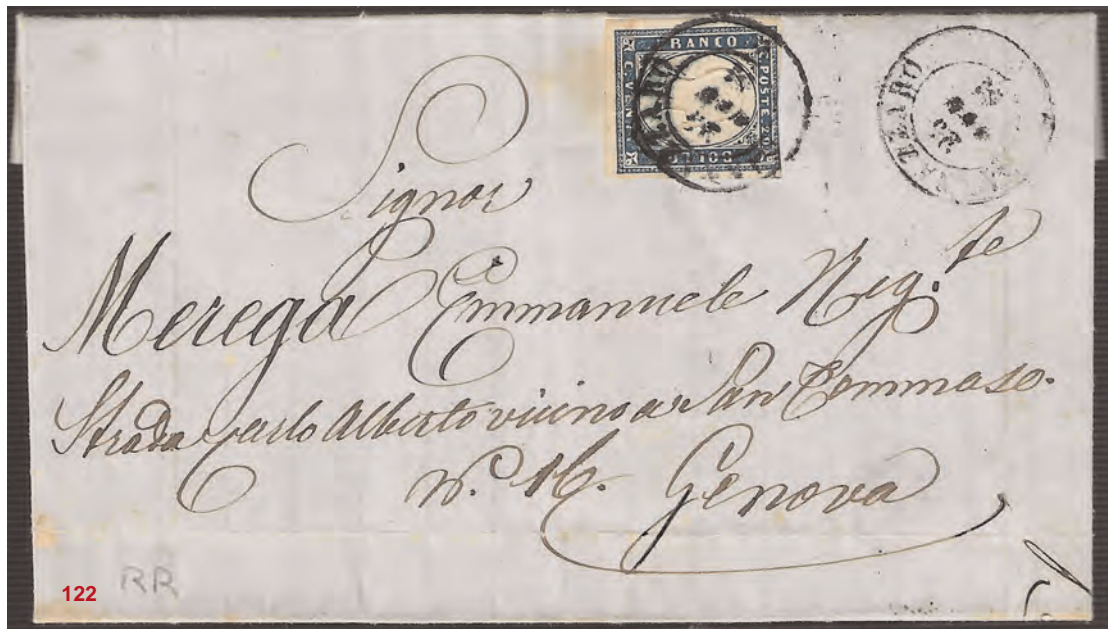 FRANCO
C. POSTE 20
BOLLO
Signor
Merega Emmanuele Neg.te
Strada Carlo Alberto vicino a San Tommaso.
N.° 16. Genova
122
RR